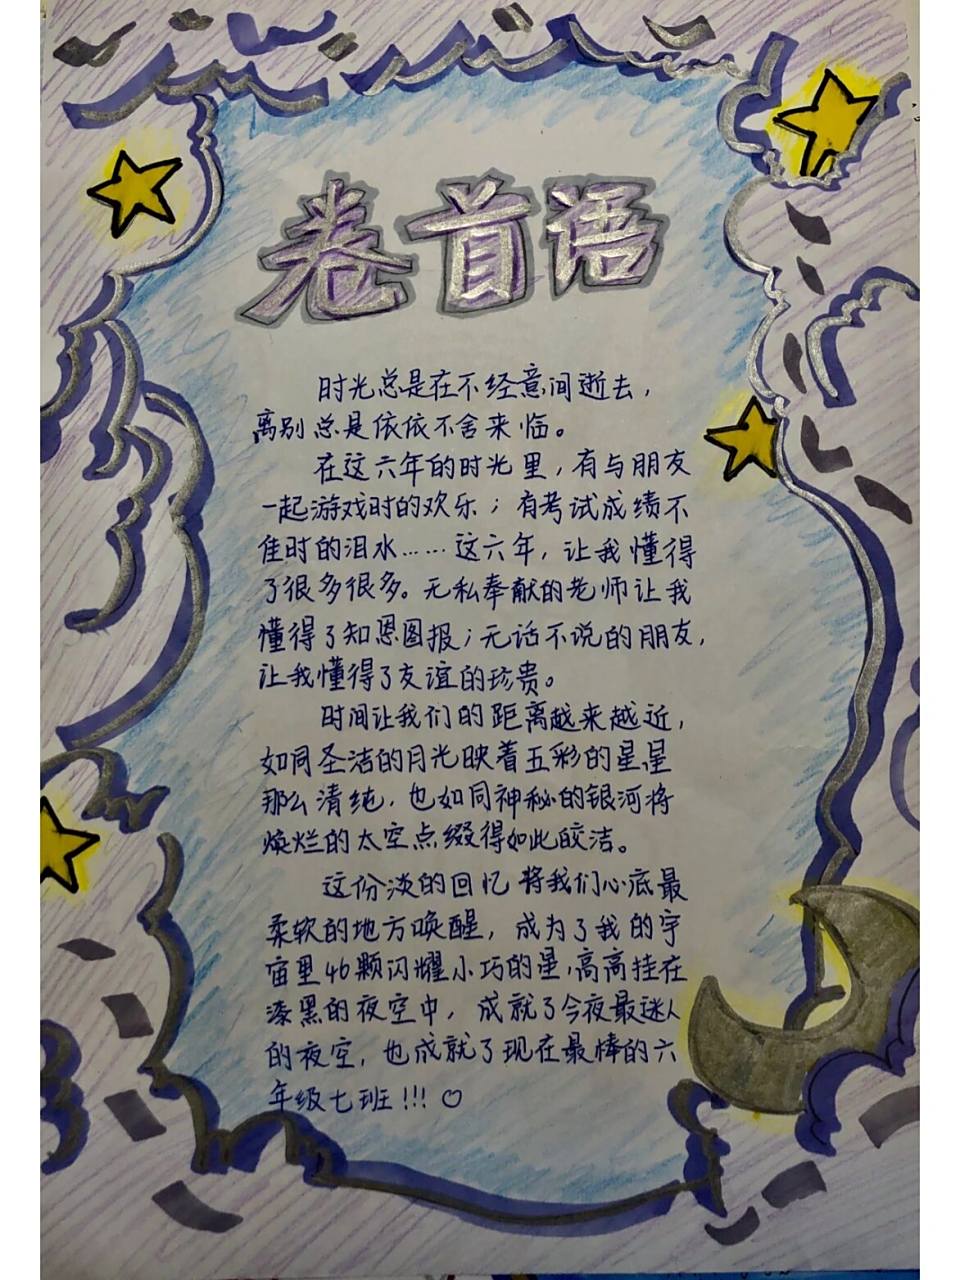 卷首语
时光总是在不经意间逝去，
离别总是依依不舍来临。
在这六年的时光里，有与朋友
一起游戏时的欢乐；有考试成绩不
佳时的泪水……这六年，让我懂得
了很多很多。无私奉献的老师让我
懂得了知恩图报；无话不说的朋友，
让我懂得了友谊的珍贵。
时间让我们的距离越来越近，
如同圣洁的月光映着五彩的星星
那么清纯，也如同神秘的银河将
焕烂的太空点缀得如此皎洁。
这份淡的回忆将我们心底最
柔软的地方唤醒，成为了我的宇
宙里46颗闪耀小巧的星，高高挂在
漆黑的夜空中，成就了今夜最迷人
的夜空，也成就了现在最棒的六
年级七班!!!♡